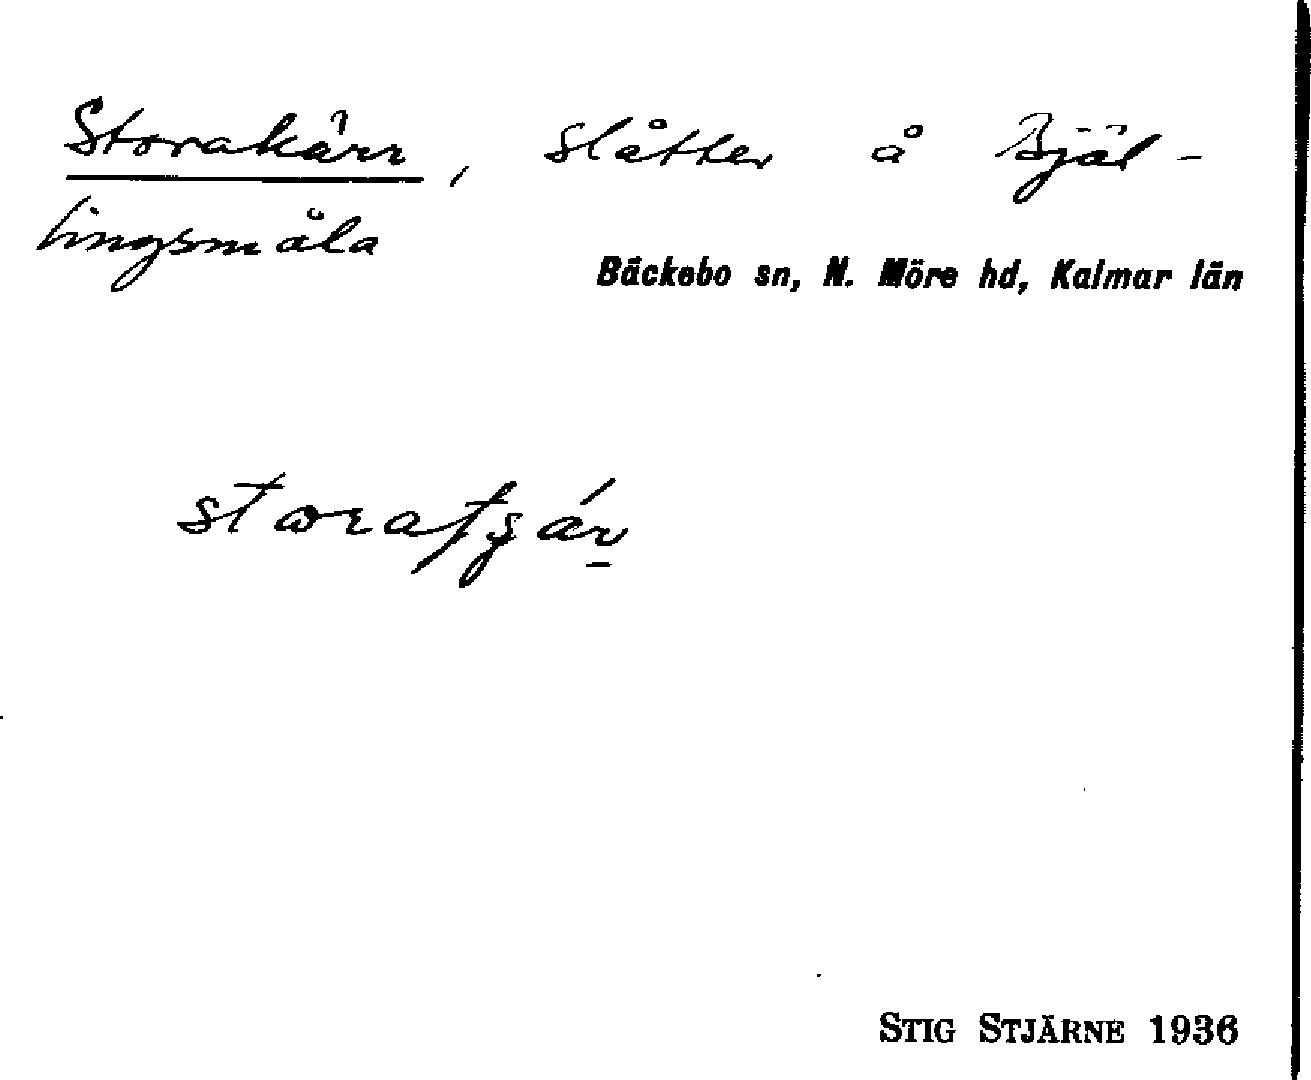 Storakärr, slåtter å Bjäl-
lingsmåla
Bäckebo sn, N. Möre hd, Kalmar län
STIG STJÄRNE 1936